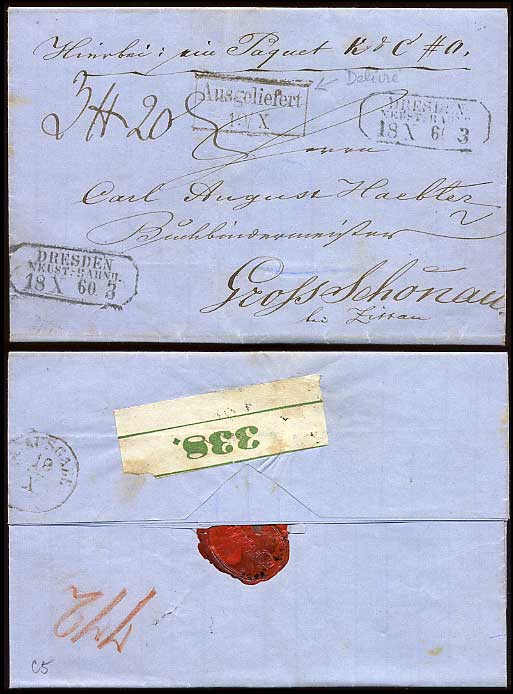 Hierbei: ein Paquet K & C #0.
Delivre
Ausgeliefert
19/X
DRESDEN
NEUST:BAHNH.
18 X 60 3
3 # 20
Herrn
Carl August Haebler
Buchbindermeister
Gross Schönau
bei Zittau
DRESDEN
NEUST:BAHNH.
18 X 60 3
338.
AUSGABE
18
X
C5